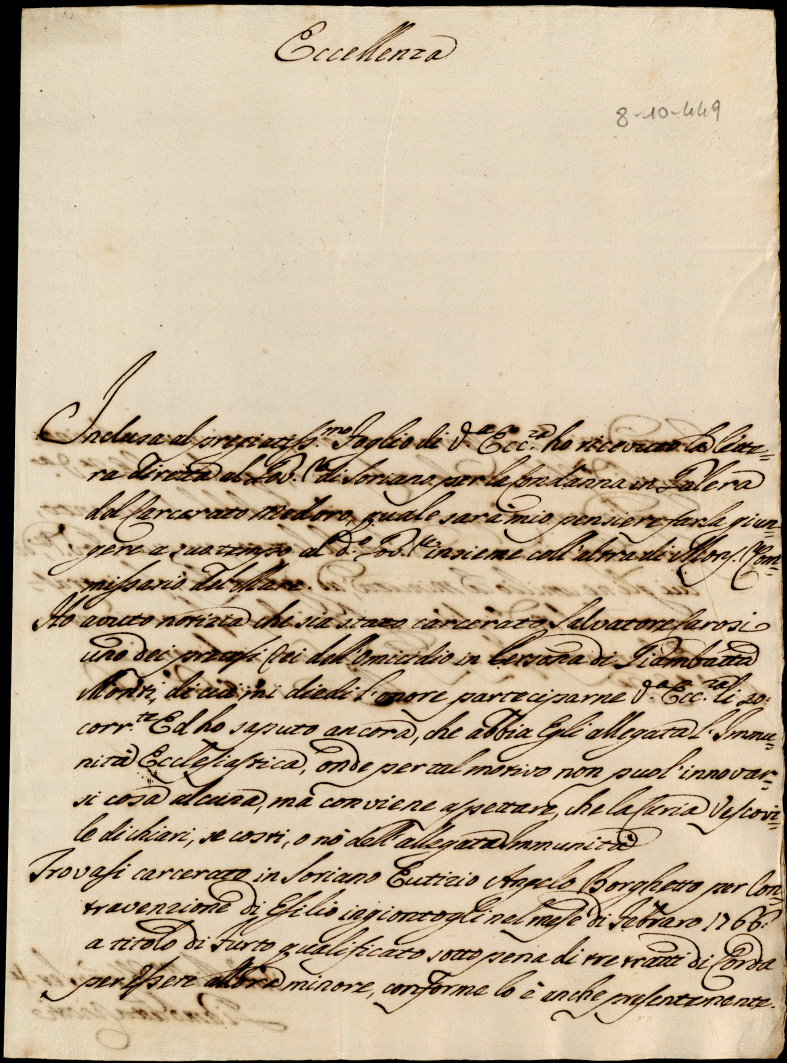 Eccellenza
8-10-449
Inclusa al pregiatiss.mo Foglio di V.a Ecc.za ho ricevuto la lette=
ra diretta al Gov.re di Soriano per la Condanna in Galera
del Carcerato Medoro, quale sarà mio pensiere farla giun=
gere a suo tempo al d.o Gov.re insieme coll'altra di Mons.r Com=
missario del Mare.
Ho avuto notizia che sia stato carcerato Salvatore Farosi
uno dei pretesi Rei dell'Omicidio in Persona di Giambatta
Monti, di cui mi diedi l'onore parteciparne V.a Ecc.za li 20:
corr.te Ed ho saputo ancora, che abbia Egli allegata l'Immu=
nità Ecclesiastica, onde per tal motivo non puol'innovar=
si cosa alcuna, ma conviene aspettare, che la Curia Vescovi=
le dichiari, se costi, o nò dell'allegata Immunità
Trovasi carcerato in Soriano Euticio Angelo Borghetto per Con=
travenzione di Esilio ingiontogli nel mese di Febraro 1766:
a titolo di Furto qualificato sotto pena di tre tratti di Corda
per Essere allora minore, conforme lo è anche presentemente.